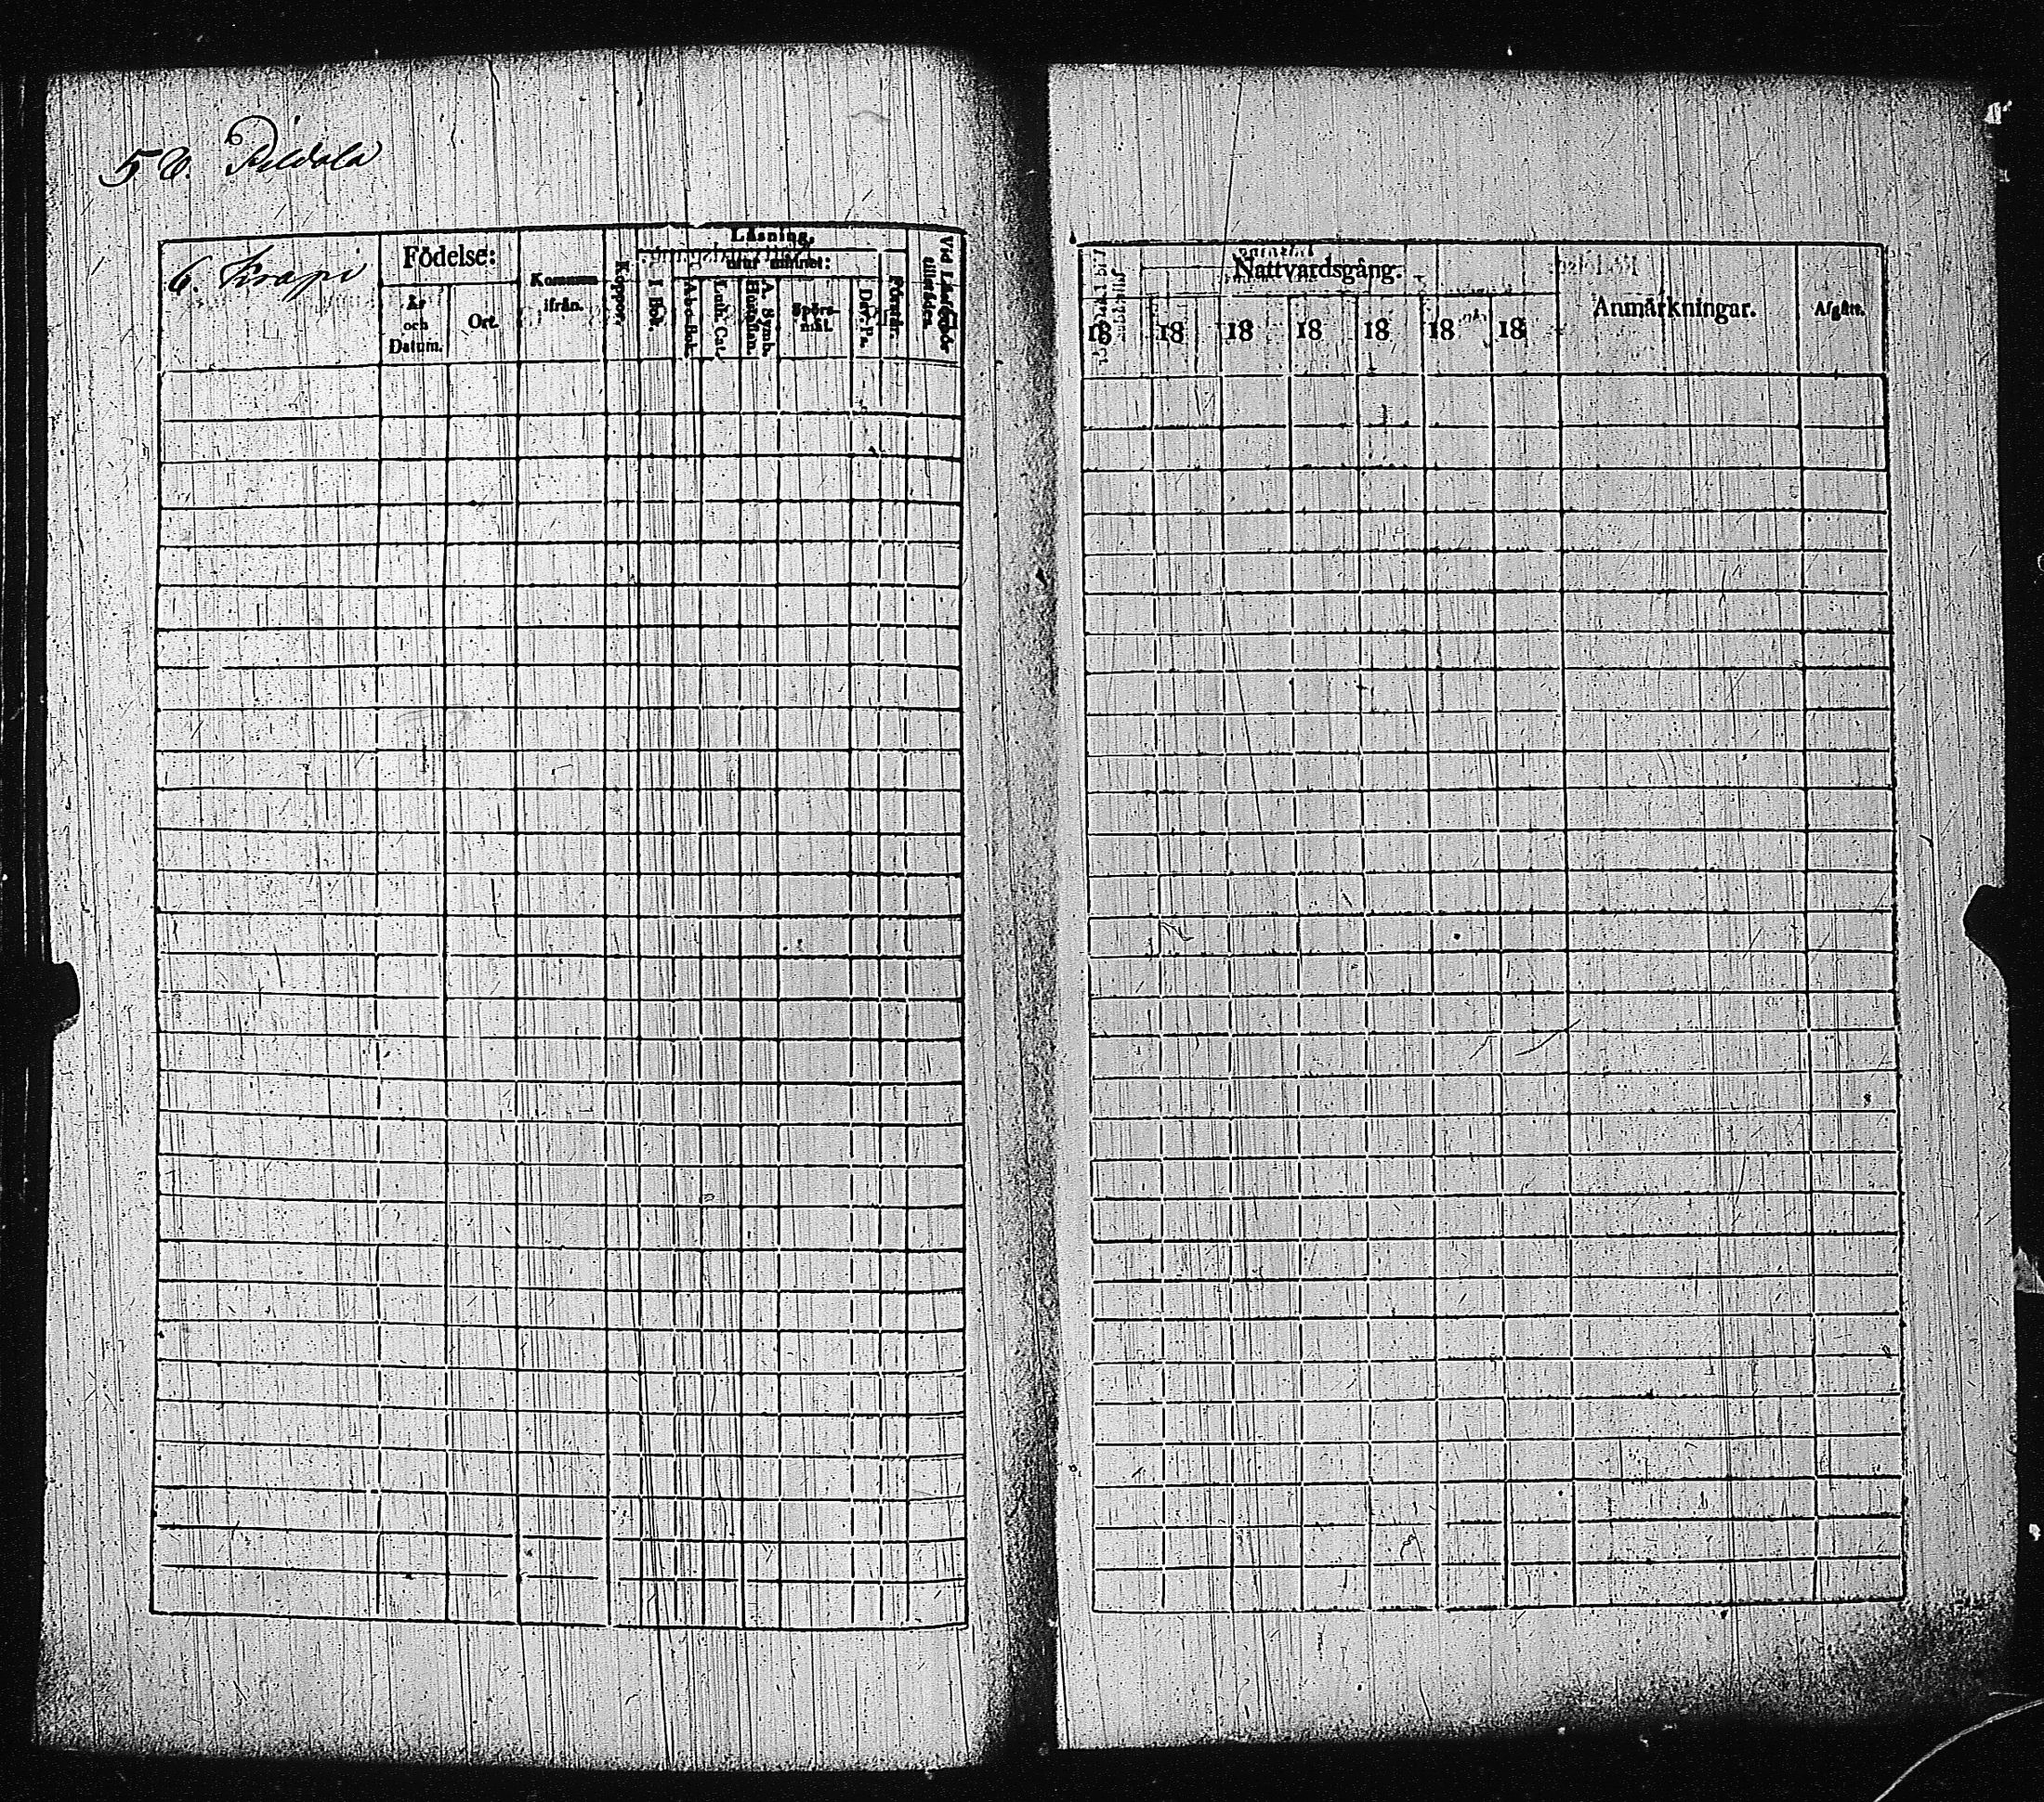 56. Pildala
6. Krapi
Födelse:
År och Datum.
Ort.
Kommen ifrån.
Koppor.
Läsning,
utur minnet:
I Bok.
A-b-c-Bok.
Luth. Cat.
A. Symb. Hustaflan.
Spörsmål.
Dav. Ps.
Förstår.
Vid Läseförhör tillstädes.
Nattvardsgång.
18 18 18 18 18 18 18
Anmärkningar.
Afgått.